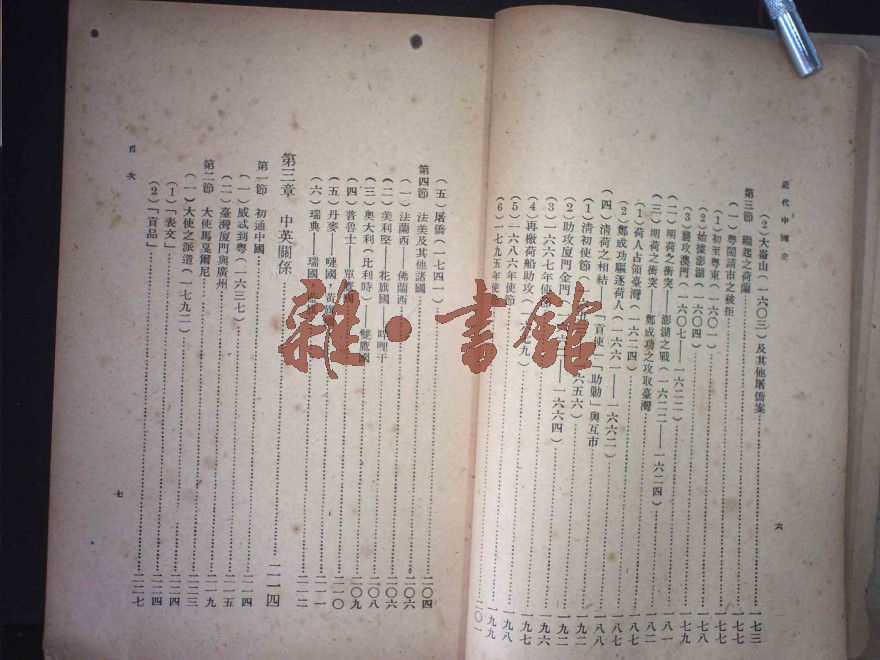 近代中國史
六
(2)大崙山(一六〇三)及其他屠僑案……一七三
第三節 繼起之荷蘭……一七七
(一)粵閩請市之被拒……一七七
(1)初至粵東(一六〇一)……一七七
(2)始據澎湖(一六〇四)……一七八
(3)襲攻澳門(一六〇七——一六二二)……一七九
(二)明荷之衝突——澎湖之戰(一六二二——一六二四)……一八一
(三)明荷之衝突——鄭成功之攻取臺灣……一八二
(1)荷人占領臺灣(一六二四)……一八七
(2)鄭成功驅逐荷人(一六六一——一六六二)……一八七
(四)清荷之相結——「貢使」「助勦」與互市……一八八
(1)清初使節
(2)助攻厦門金門
(3)一六六七年使
(4)再檄荷船助攻
(5)一六八六年使節……一九八
(6)一七九五年使節
(五)屠僑(一七四一)……二〇四
第四節 法美及其他諸國……二〇六
(一)法蘭西——佛蘭西……二〇六
(二)美利堅——花旗國
(三)奧大利(比利時)——雙鷹國
(四)普魯士——單鷹國……二〇九
(五)丹麥
(六)瑞典——瑞國
第三章 中英關係……二一四
第一節 初通中國……二一四
(一)威忒到粵(一六三七)……二一四
(二)臺灣厦門與廣州……二一五
第二節 大使馬戛爾尼……二一九
(一)大使之派遣(一七九二)……二二三
(1)「表文」……二二四
(2)「貢品」……二二七
目次
七
雜·書館